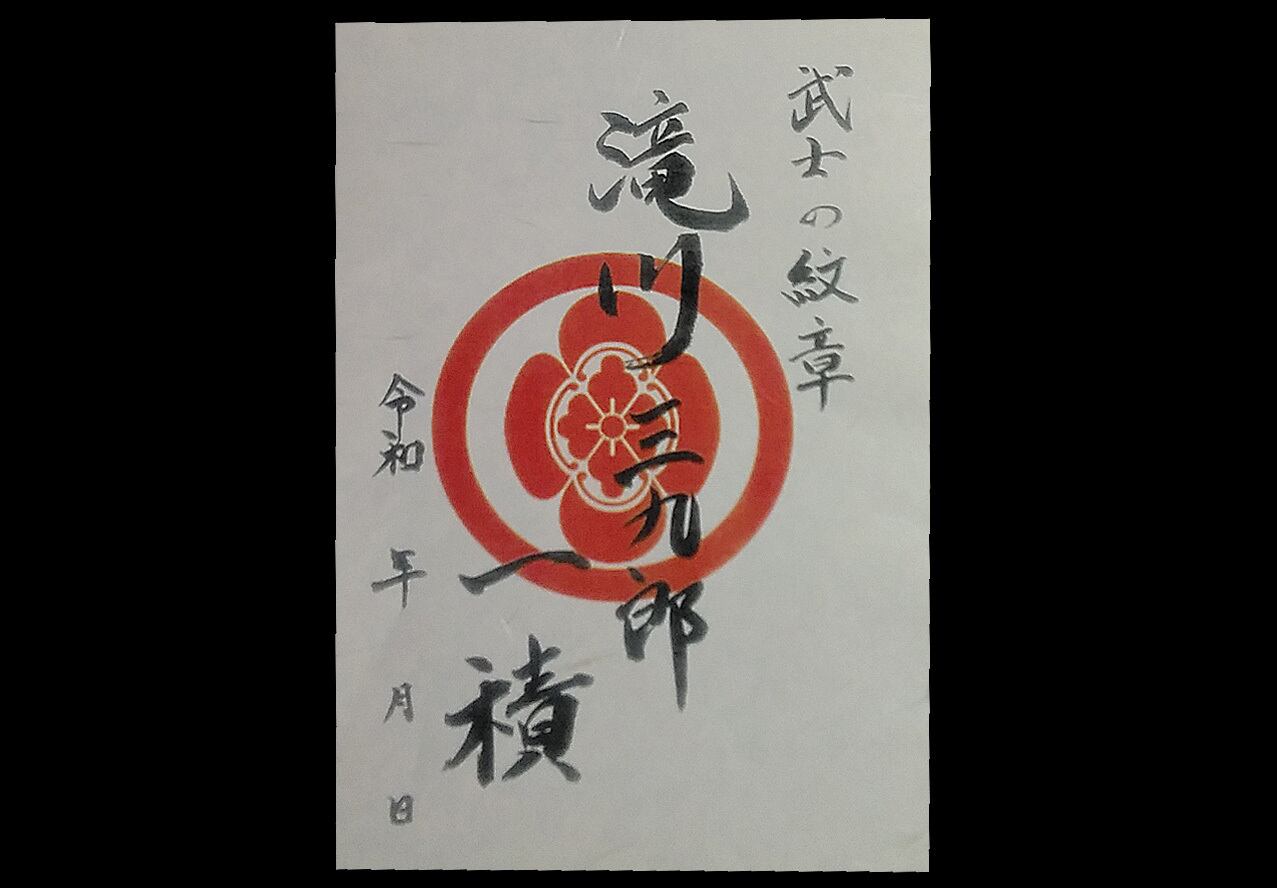 武士の紋章
滝川三九郎
一積
令和 年 月 日